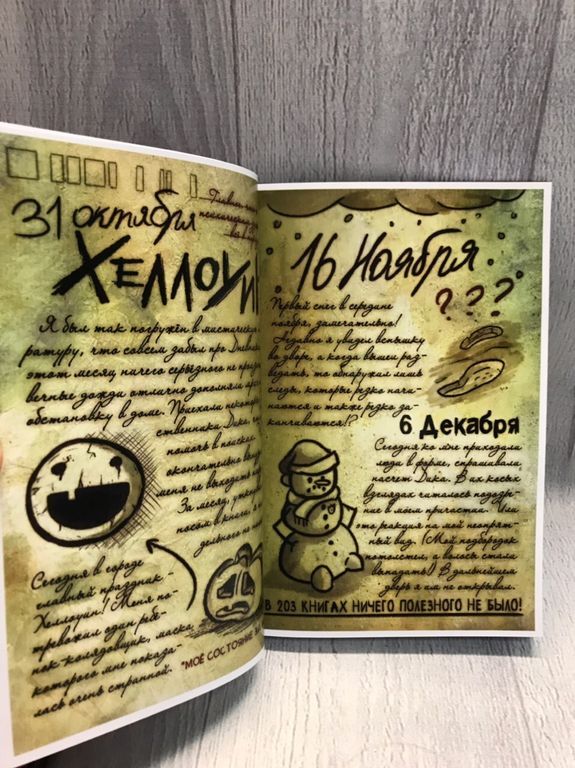 31 октября
Хеллоуин
Я был так погружён в мистическую
ратуру, что совсем забыл про Дневник
этот месяц ничего серьёзного не
вечные дожди отлично дополняли
обстановку в доме. Приехали
ственники Дика,
помочь в поисках
окончательно
меня не выходит
За месяц,
носом в книги, я
дельного не
Сегодня в городе
главный праздник -
Хеллоуин! Меня по-
тревожил один реб-
нок-колядовщик, маска
которого мне показа-
лась очень странной.
"МОЁ СОСТОЯНИЕ
16 Ноября
???
Первый снег в середине
ноября, замечательно!
Недавно я увидел вспышку
во дворе, а когда вышел раз-
ведать, то обнаружил лишь
следы, которые резко начи-
наются и также резко за-
канчиваются!?
6 Декабря
Сегодня ко мне приходили
люди в форме, спрашивали
насчет Дика. В их косых
взглядах читалось подозре-
ние в моём причастии. Или
это реакция на мой неопрят-
ный вид. (Мой подбородок
потолстел, а волосы стали
выпадать) В дальнейшем
дверь я им не открывал.
В 203 КНИГАХ НИЧЕГО ПОЛЕЗНОГО НЕ БЫЛО!